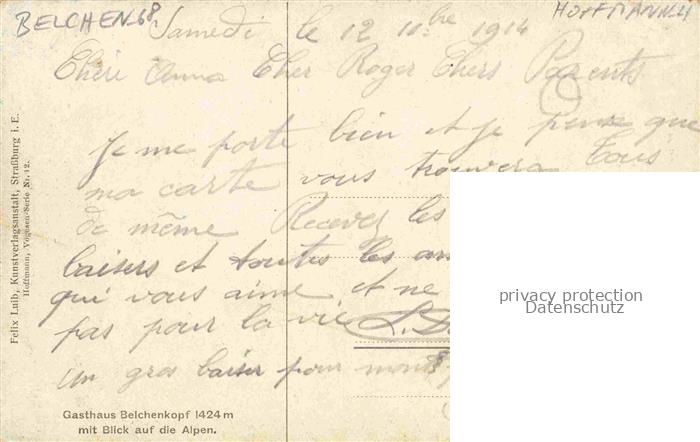 BELCHEN 68
HOFFMANN
Samedi le 12 1914
Chéri Anna Cher Roger Chers Parents
Je me porte bien et je pense que
ma carte vous trouvera Tous
de même Recevez les
baisers et toutes les
qui vous aime et ne
pas pour la vie
un gros baiser pour
Felix Luib, Kunstverlagsanstalt, Straßburg i. E.
Hoffmann, Vogesen-Serie Nr. 12.
Gasthaus Belchenkopf 1424 m
mit Blick auf die Alpen.
privacy protection
Datenschutz